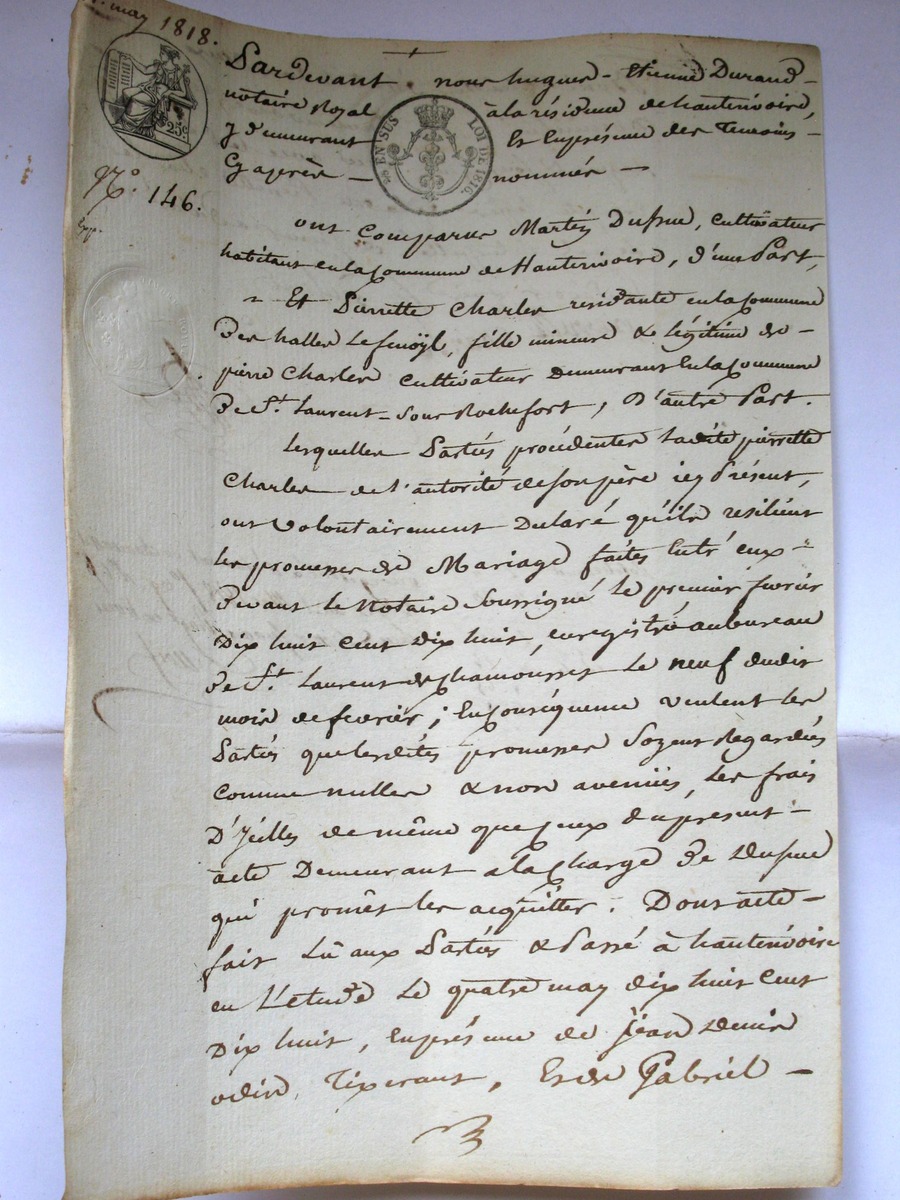 may 1818.
25c
EN SUS LOI DE 1816.
No. 146.
Exp.
Pardevant nous hugues - Etienne Durand -
notaire Royal à la résidence de hauterivoire,
y demeurant Et En présence des Temoins -
Cy après - nommés -
ont comparus Martin Dufrne, cultivateur
habitant en la Commune de Hauterivoire, d'une Part,
Et Pierrette Charles residante en la Commune
des halles Le fenoÿl, fille mineure & légitime de -
pierre Charles cultivateur Demeurant En la Commune
de St. Laurent - sous Rochefort, D'autre Part.
Lesquelles Parties procédentes ladite pierrette
Charles de l'autorité de son père icy Présent,
ont volontairement Declaré qu'ils resilient
les promesses de Mariage faites Entre eux
devant le Notaire soussigné le premier fevrier
Dix huit cent dix huit, enregistré au bureau
de St. Laurent de Chamousset Le neuf dudit
mois de fevrier ; En Conséquence veulent les
Parties que lesdites promesses Soyent Regardées
comme nulles & non avenües, Les frais
D'Ycelles de même que Ceux du present -
acte Demeurant a la Charge de
qui promêt les acquitter. Dont acte -
fait Lû aux Parties & Passé à hauterivoire
en L'etude Le quatre may dix huit cent
Dix huit, En présence de jean Denis
odin, Tixerant, Et de Gabriel -